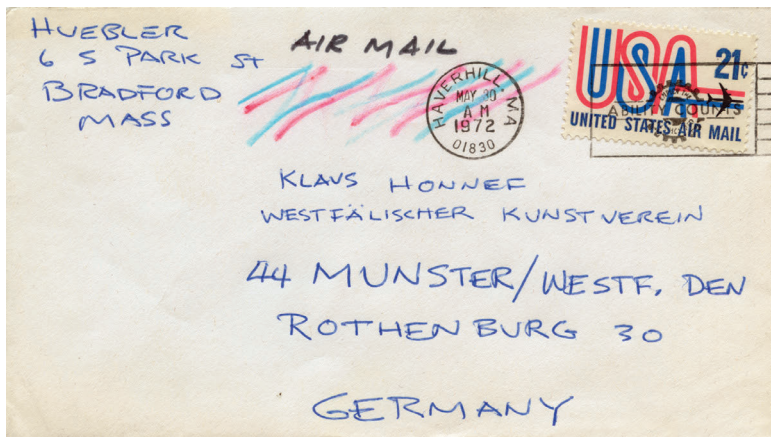 HUEBLER
6 S PARK St
BRADFORD
MASS
AIR MAIL
HAVERHILL, MA
MAY 30
AM
1972
01830
USA 21¢
ABILITY COUNTS
UNITED STATES AIR MAIL
KLAUS HONNEF
WESTFÄLISCHER KUNSTVEREIN
44 MUNSTER/WESTF. DEN
ROTHENBURG 30
GERMANY